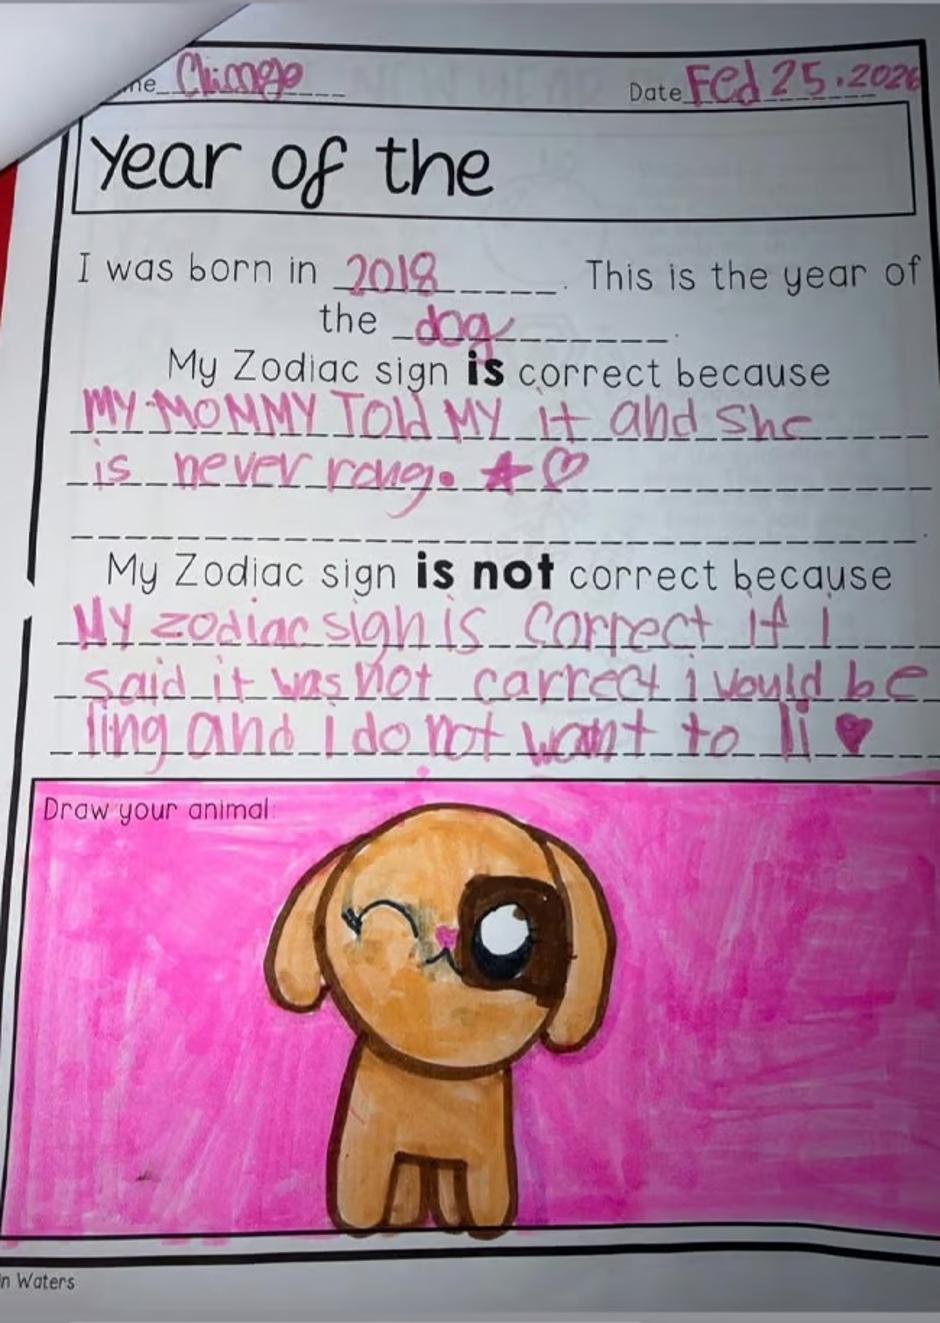 me Chimege Date Fed 25.2026
Year of the
I was born in 2018. This is the year of
the dog.
My Zodiac sign is correct because
MY MOMMY TOld MY it and she
is never rong.
My Zodiac sign is not correct because
My zodiac sign is correct if i
said it was not carrect i would be
ling and I do not want to li
Draw your animal:
n Waters